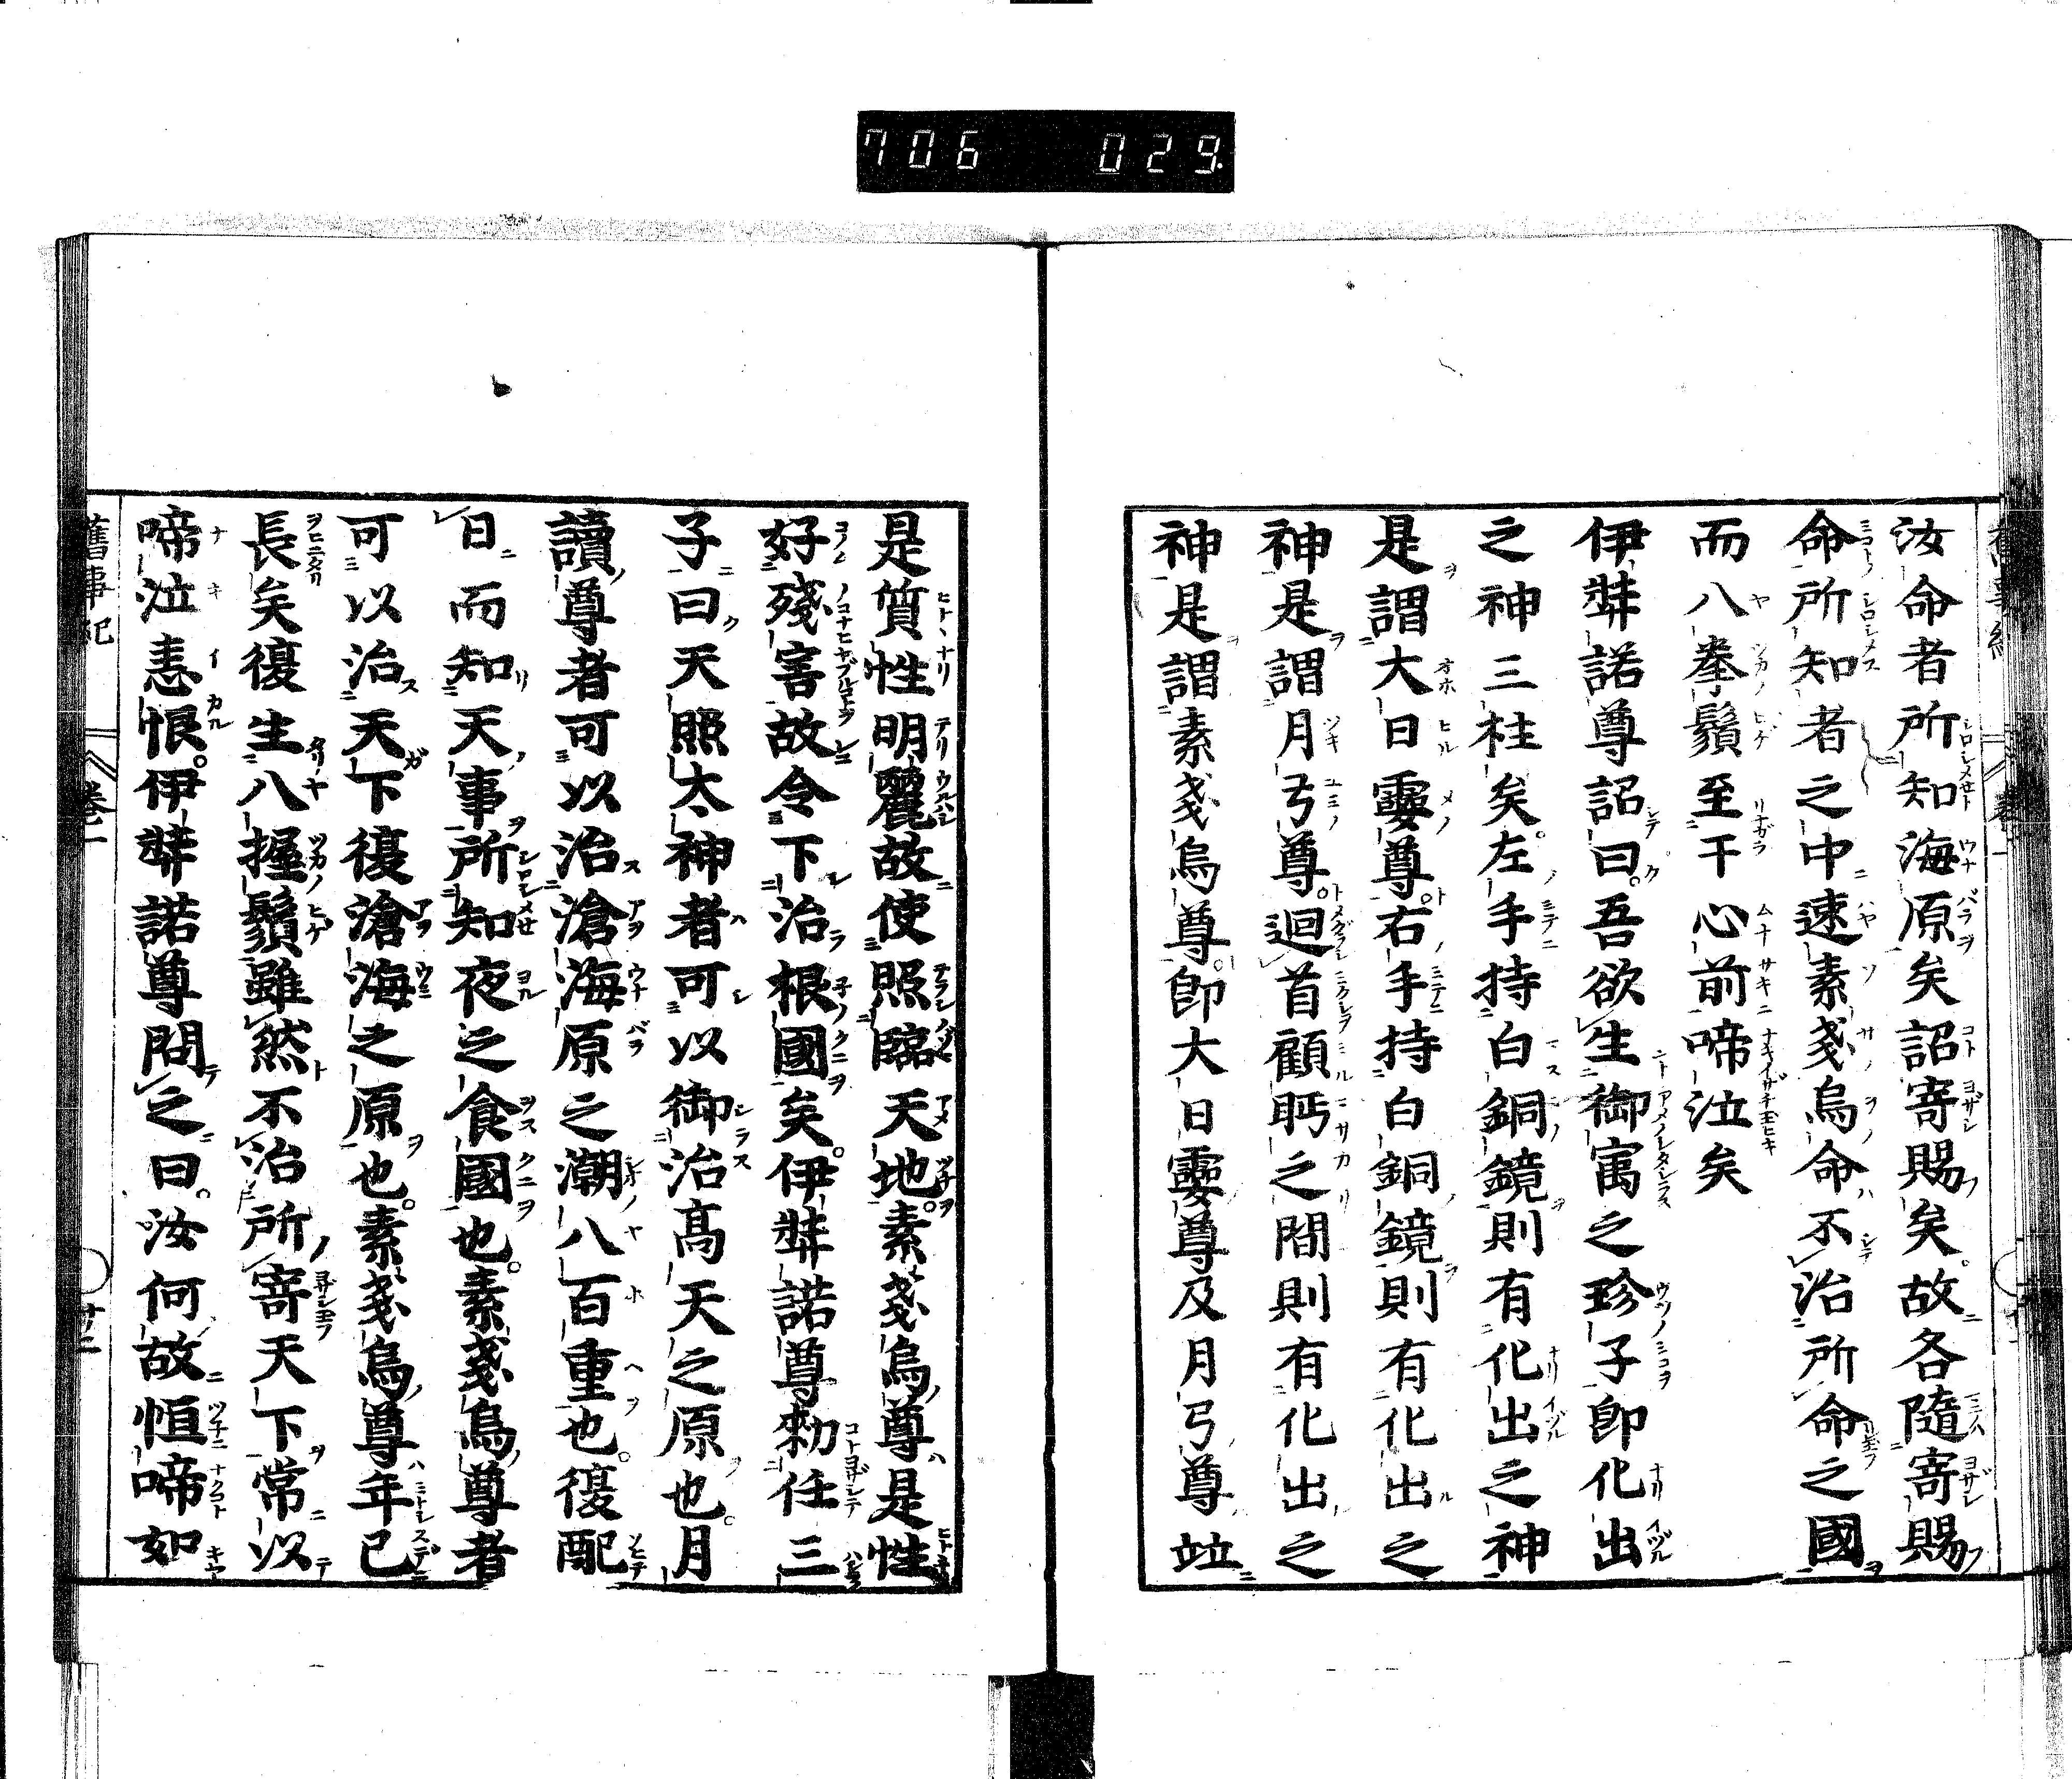 706 029
汝命者所知海原矣詔寄賜矣。故各隨寄賜
命所知者之中速素戔烏命不治所命之國
而八拳鬚至于心前啼泣矣
伊弉諾尊詔曰。吾欲生御㝢之珍子即化出
之神三柱矣。左手持白銅鏡則有化出之神
是謂大日孁尊。右手持白銅鏡則有化出之
神是謂月弓尊。迴首顧眄之間則有化出之
神是謂素戔烏尊。即大日孁尊及月弓尊竝
是質性明麗故使照臨天地。素戔烏尊是性
好殘害故令下治根國矣。伊弉諾尊勅任三
子曰天照太神者可以御治高天之原也。月
讀尊者可以治滄海原之潮八百重也。復配
日而知天事所知夜之食國也。素戔烏尊者
可以治天下復滄海之原也。素戔烏尊年已
長矣復生八握鬚雖然不治所寄天下常以
啼泣恚恨。伊弉諾尊問之曰。汝何故恒啼如
舊事紀 卷一 廿二